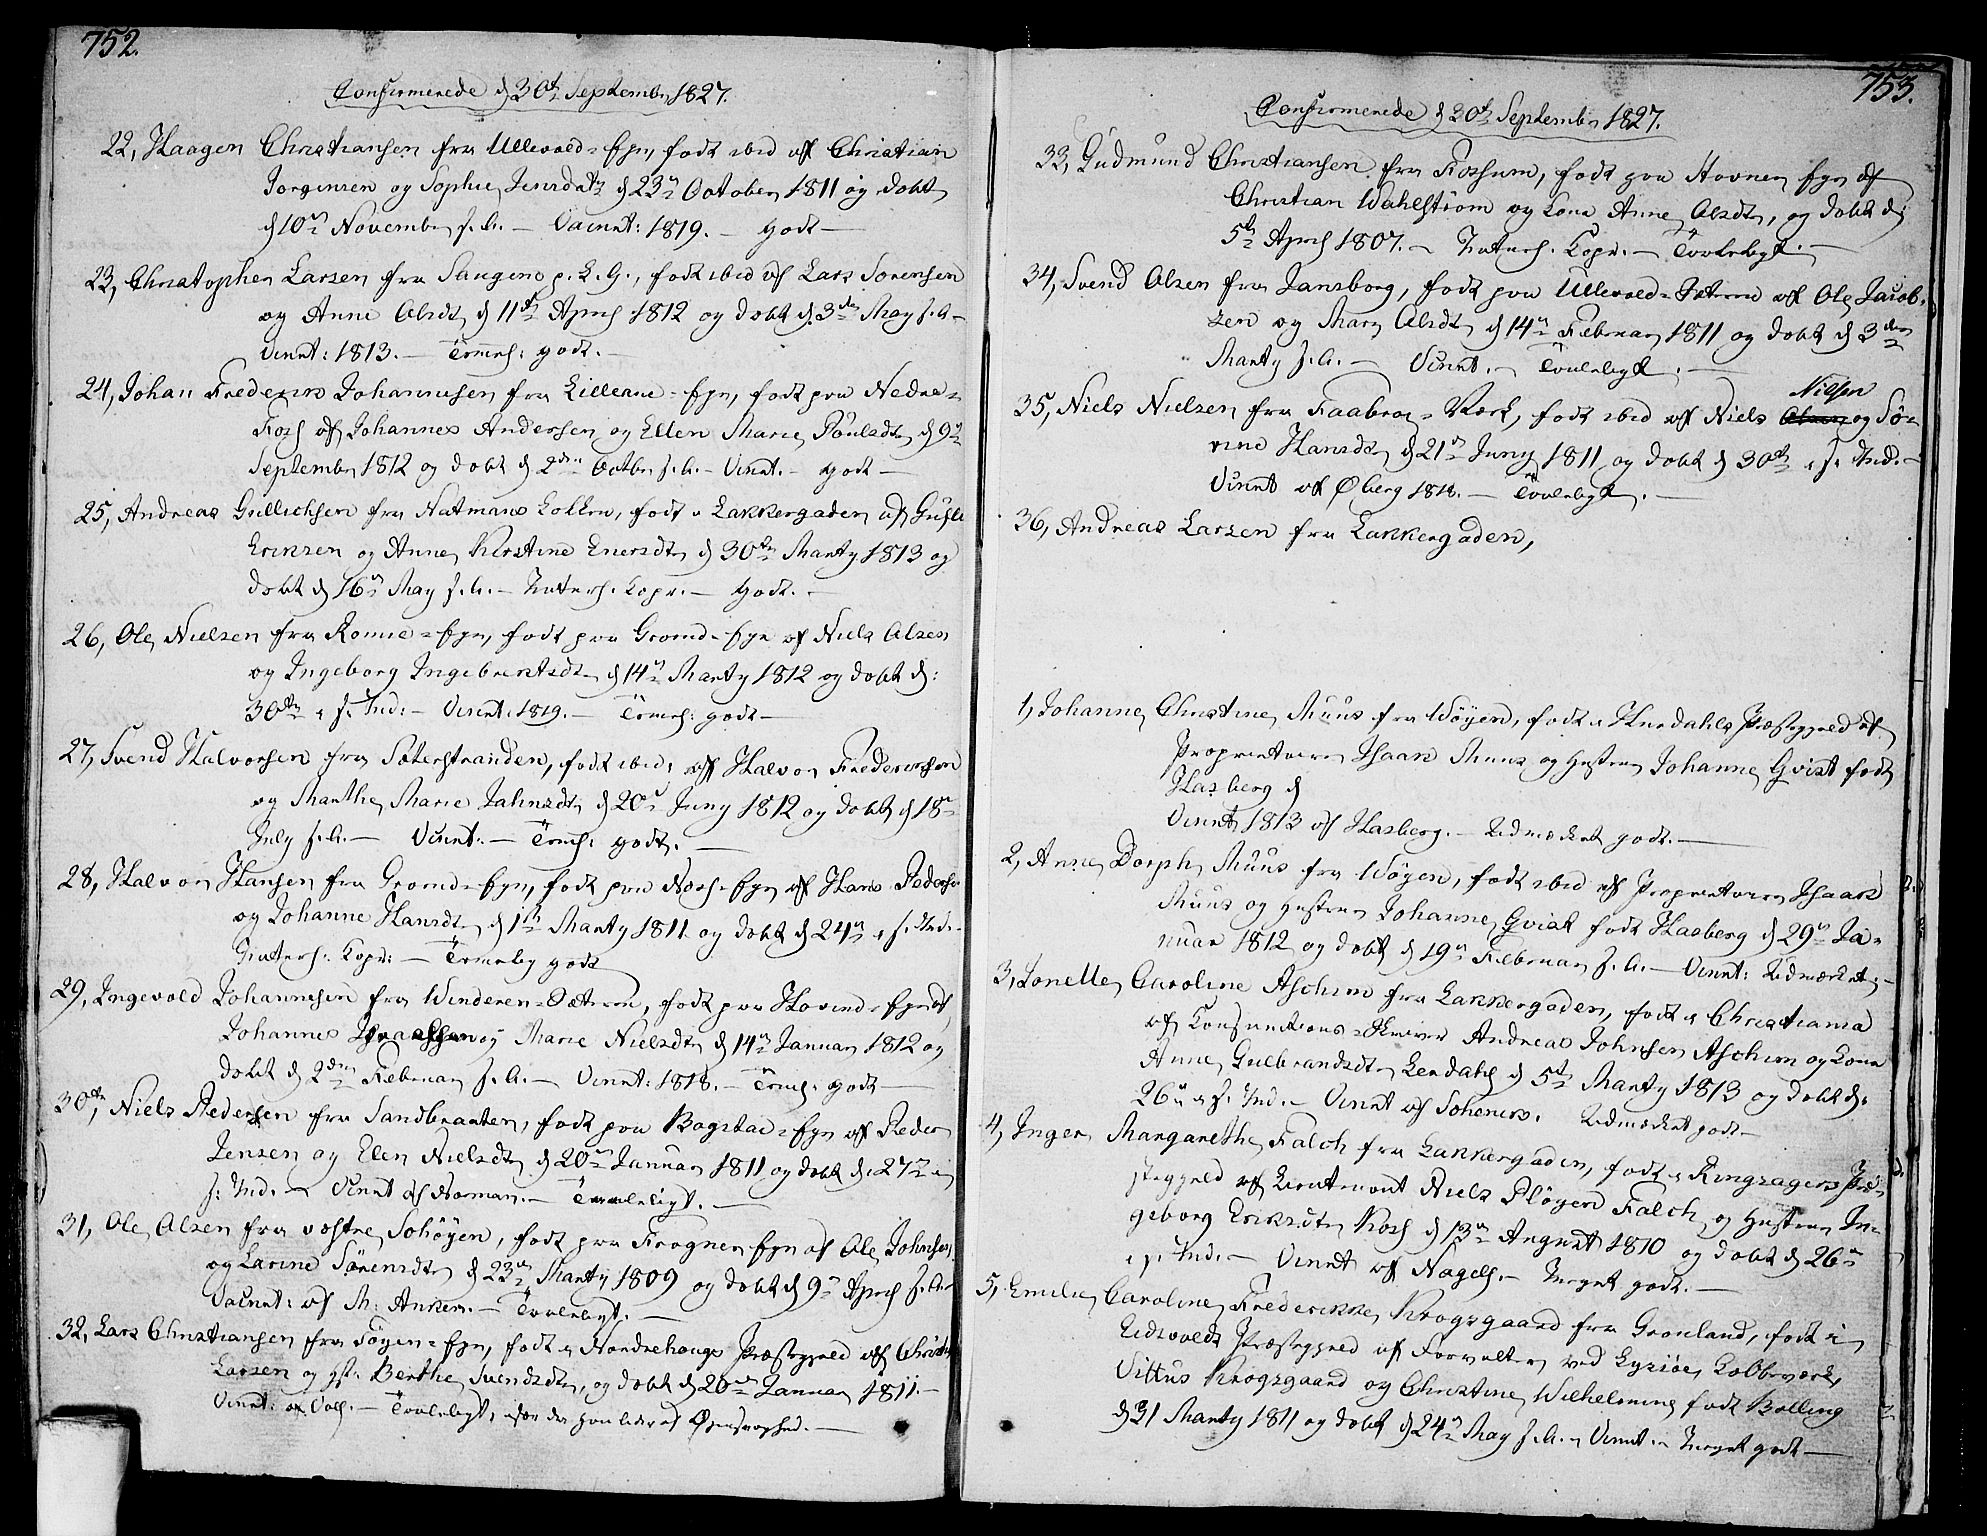 752.
Confirmerede d 30t Septembr 1827.
22, Haagen Christiansen fra Ullevold-Eyn, født ibid af Christian
Jorgensen og Sophie Jensdatr d 23de October 1811 og døbt
d 10de November s. A. — Vacint: 1819. — godt —
23, Christopher Larsen fra Saugene p. L. G., født ibid af Lars Sorensen
og Anne Olsdt d 11te April 1812 og døbt d. 3den May s. A. —
Vcint: 1813. — Temel: godt. —
24, Johan Frederik Johannesen fra Lilleane-Eyn, født paa Nedre-
Foss af Johannes Andersen og Ellen Marie Poulsdt d 9de
September 1812 og døbt d 2den Octbr s. A. — Vcint. — godt —
25, Andreas Gullichsen fra Natmans Lokken, født i Lakkergaden af
Eriksen og Anne Kirstine Enersdt d 30te Marty 1813 og
døbt d 16de May s. A. — Naturl. Kopr. — godt. —
26, Ole Nielsen fra Eyn, født paa Eyn af Niels Olsen
og Ingeborg Ingebrectsdt d 14de Marty 1812 og døbt d:
30te i s. Md: — Vcint: 1819. — Temel: godt —
27, Svend Halvorsen fra Sæterstranden, født ibid: af Halvor Frederiksen
og Marthe Marie Jahnsdt d 20de Juny 1812 og døbt d 18de
July s. A. — Vcint: — Temel: godt. —
28, Halvor Hansen fra Eyn, født paa Eyn af Hans Pedersen
og Johanne Hansdt d 1ste Marty 1811 og døbt d 24de i s. Md. —
Kopr: — Temelig godt
29, Ingevold Johannesen fra Winderen-Sæteren, født paa Hovind-Eyn af
Johannes og Marie Nielsdt d 14de Januar 1812 og
døbt d 2den Februar s. A. — Vcint: 1818. — Temel: godt —
30te, Niels Pedersen fra Sandbraaten, født paa Bogstad-Eyn af Peder
Jensen og Elen Nielsdt d 20de Januar 1811 og døbt d. 27de i
s. Md. — Vcint af Norman. — Tvoleligt. —
31, Ole Olsen fra vestre Sohøyen, født paa Frogner Eyn af Ole Johnsen
og Larine Sörensdt d 23de Marty 1809 og døbt d 9de April s. A. —
Vacint: af M: Anker. — Tvoleligt. —
32, Lars Christiansen fra Søyen-Eyn, født i Nordrehougs Præstegjeld af Christ:
Larsen og Berthe Svendsdt, og døbt d 20de Januar 1811. —
Vcint: af Voss. — Tvoleligt,
753.
Confirmerede d 30te Septembr 1827.
33, Gudmund Christiansen fra Fossum, født paa Hovnen Eyn af
Christian Wahlstrøm og Kone Anne Olsdt, og døbt d.
5te April 1807. — Naturl. Kopr. — Tvoleligt. —
34, Svend Olsen fra Jansborg, født paa Ullevold-Sæteren af Ole Jacob-
sen og Mari Olsdt d 14de Februar 1811 og døbt d 3den
Marty s. A. — Vcint. — Tvoleligt. —
35, Niels Nielsen fra Faabroe-Værk, født ibid af Niels Nilsen og Sø-
rine Hansdt d 21de Juny 1811 og døbt d 30te i s. Md. —
Vcint af Øberg 1818. — Tvoleligt. —
36, Andreas Larsen fra Lakkergaden,
1, Johanne Christine Muus fra Wöyen, født i Hurdahls Præstegjeld af
Proprietairen Isaac Muus og Hustru Johanne Qvist født
Hasberg d
Vcint 1813 af Hasberg. — Udmærket godt. —
2, Anne Dorph Muus fra Wöyen, født ibid af Proprietairen Isaack
Muus og Hustru Johanne Qvist født Hasberg d 29de Ja-
nuar 1812 og døbt d 19de Februar s. A. — Vcint: Udmærket. —
3, Lonelle Caroline Aschim fra Lakkergaden, født i Christiania
af Consumtions-Skriver Andreas Johnsen Aschim og Kone
Anne Gulbrandsdt Lendahl d 5te Marty 1813 og døbt d.
26de i s. Md. — Vcint af . Udmærket godt —
4, Inger Margarethe Falch fra Lakkergaden, født i Ringsagers Præ-
stegjeld af Lieutenant Niels Pløyen Falch og Hustru In-
geborg Eriksdt Koss d 13de August 1810 og døbt d 26de
i s. Md. — Vcint af Nagel. — Meget godt. —
5, Emilie Caroline Frederikke Krogsgaard fra Gronland, født i
Udsvolds Præstegjeld af Forvalter ved Cobberværk,
Vittus Krogsgaard og Christine Wilhelmine født Bolling
d 31 Marty 1811 og døbt d 24de May s. A. — Vcint. — Meget godt —